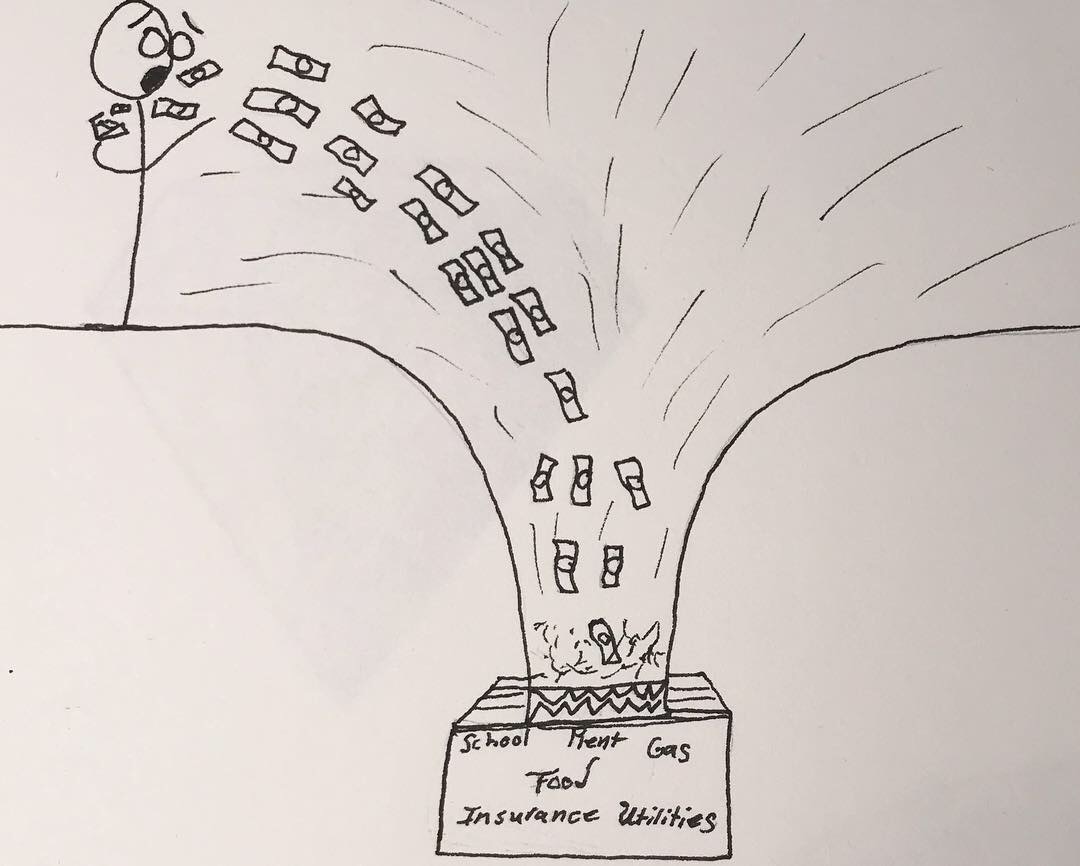 School Rent Gas
Food
Insurance Utilities